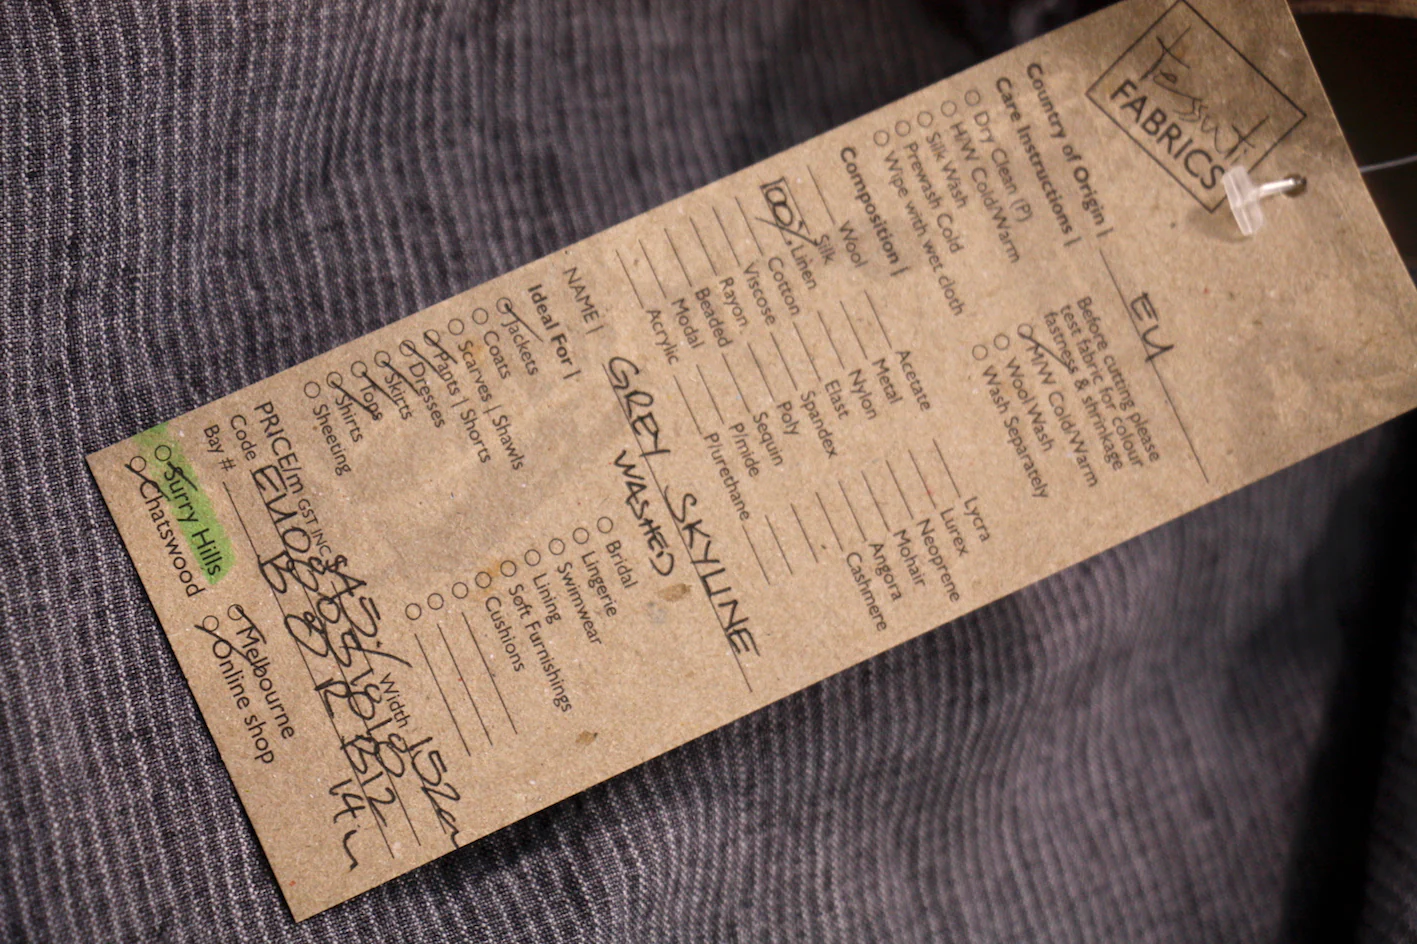 tessuti
FABRICS
Country of Origin | EU
Care Instructions |
Dry Clean (P)
H/W Cold/Warm
Silk Wash
Prewash Cold
Wipe with wet cloth
Before cutting please
test fabric for colour
fastness & shrinkage
M/W Cold/Warm
Wool Wash
Wash Separately
Composition |
Wool
Silk
100% Linen
Cotton
Viscose
Rayon
Beaded
Modal
Acrylic
Acetate
Metal
Nylon
Elast
Spandex
Poly
Sequin
P/mide
P/urethane
Lycra
Lurex
Neoprene
Mohair
Angora
Cashmere
NAME | GREY SKYLINE
WASHED
Ideal For |
Jackets
Coats
Scarves | Shawls
Pants | Shorts
Dresses
Skirts
Tops
Shirts
Sheeting
Bridal
Lingerie
Swimwear
Lining
Soft Furnishings
Cushions
PRICE/m GST INC Width 152cm
Code
Bay # B 8 R B12 14m
Surry Hills
Chatswood
Melbourne
Online shop